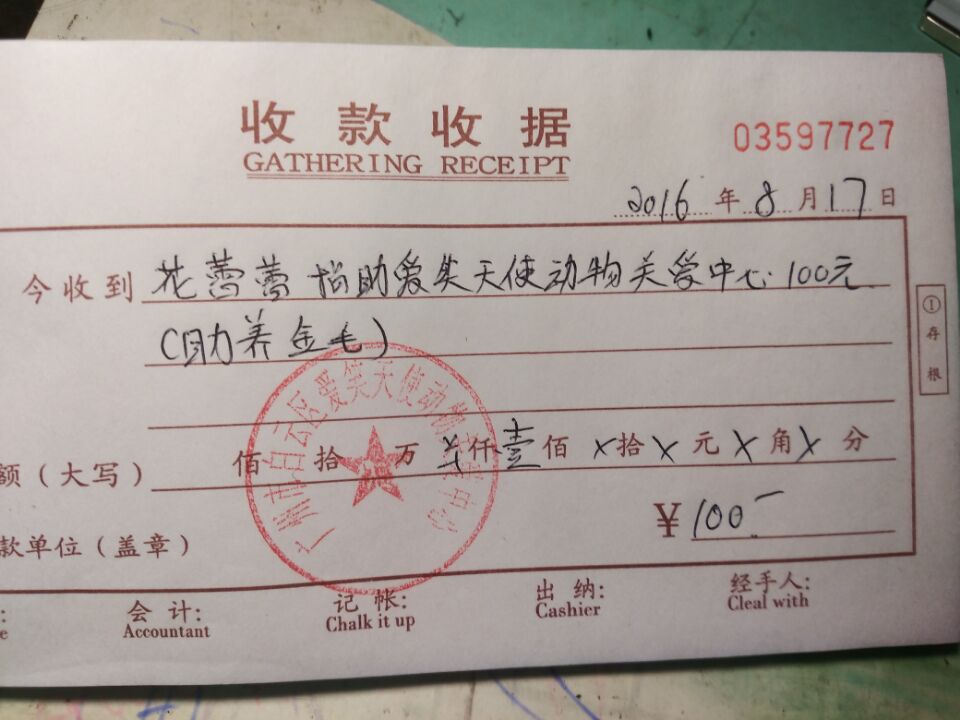 收款收据
GATHERING RECEIPT
03597727
2016年8月17日
今收到 花蕾蕾 捐助爱笑天使动物关爱中心 100元
(助养金毛)
①存根
额(大写) 佰 拾 万 ¥仟壹佰 X拾X元X角X分
¥100-
款单位(盖章)
广州市白云区爱笑天使动物关爱中心
会计: 记帐: 出纳: 经手人:
Accountant Chalk it up Cashier Cleal with